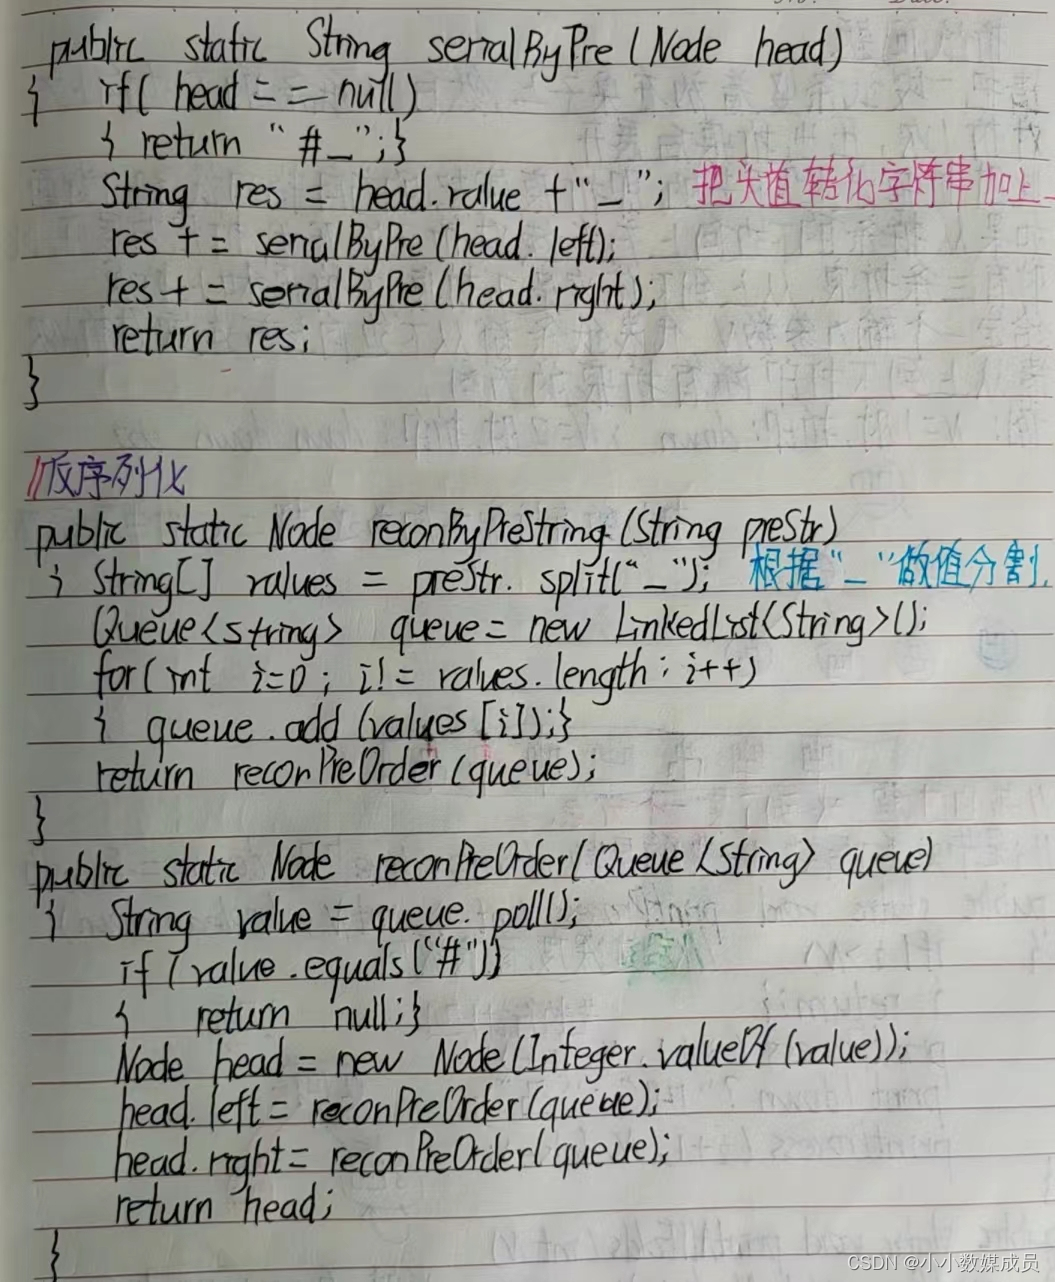 public static String serialByPre(Node head)
{ if(head == null)
{ return "#_";}
String res = head.value +"_"; 把头值转化字符串加上_
res += serialByPre(head.left);
res += serialByPre(head.right);
return res;
}
//反序列化
public static Node reconByPreString(String preStr)
{ String[] values = preStr.split("_"); 根据"_"做值分割.
Queue<String> queue = new LinkedList<String>();
for(int i=0; i!= values.length; i++)
{ queue.add(values[i]);}
return reconPreOrder(queue);
}
public static Node reconPreOrder(Queue<String> queue)
{ String value = queue.poll();
if(value.equals("#"))
{ return null;}
Node head = new Node(Integer.valueOf(value));
head.left = reconPreOrder(queue);
head.right = reconPreOrder(queue);
return head;
}
CSDN @小小数媒成员